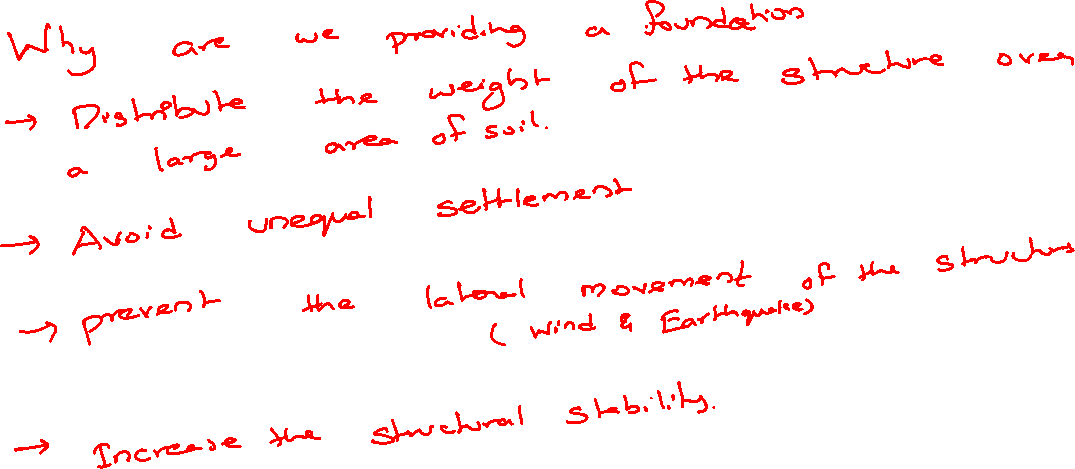 Why are we providing a foundation
→ Distribute the weight of the structure over
a large area of soil.
→ Avoid unequal settlement
→ prevent the lateral movement of the structure
( wind & Earthquake)
→ Increase the structural stability.